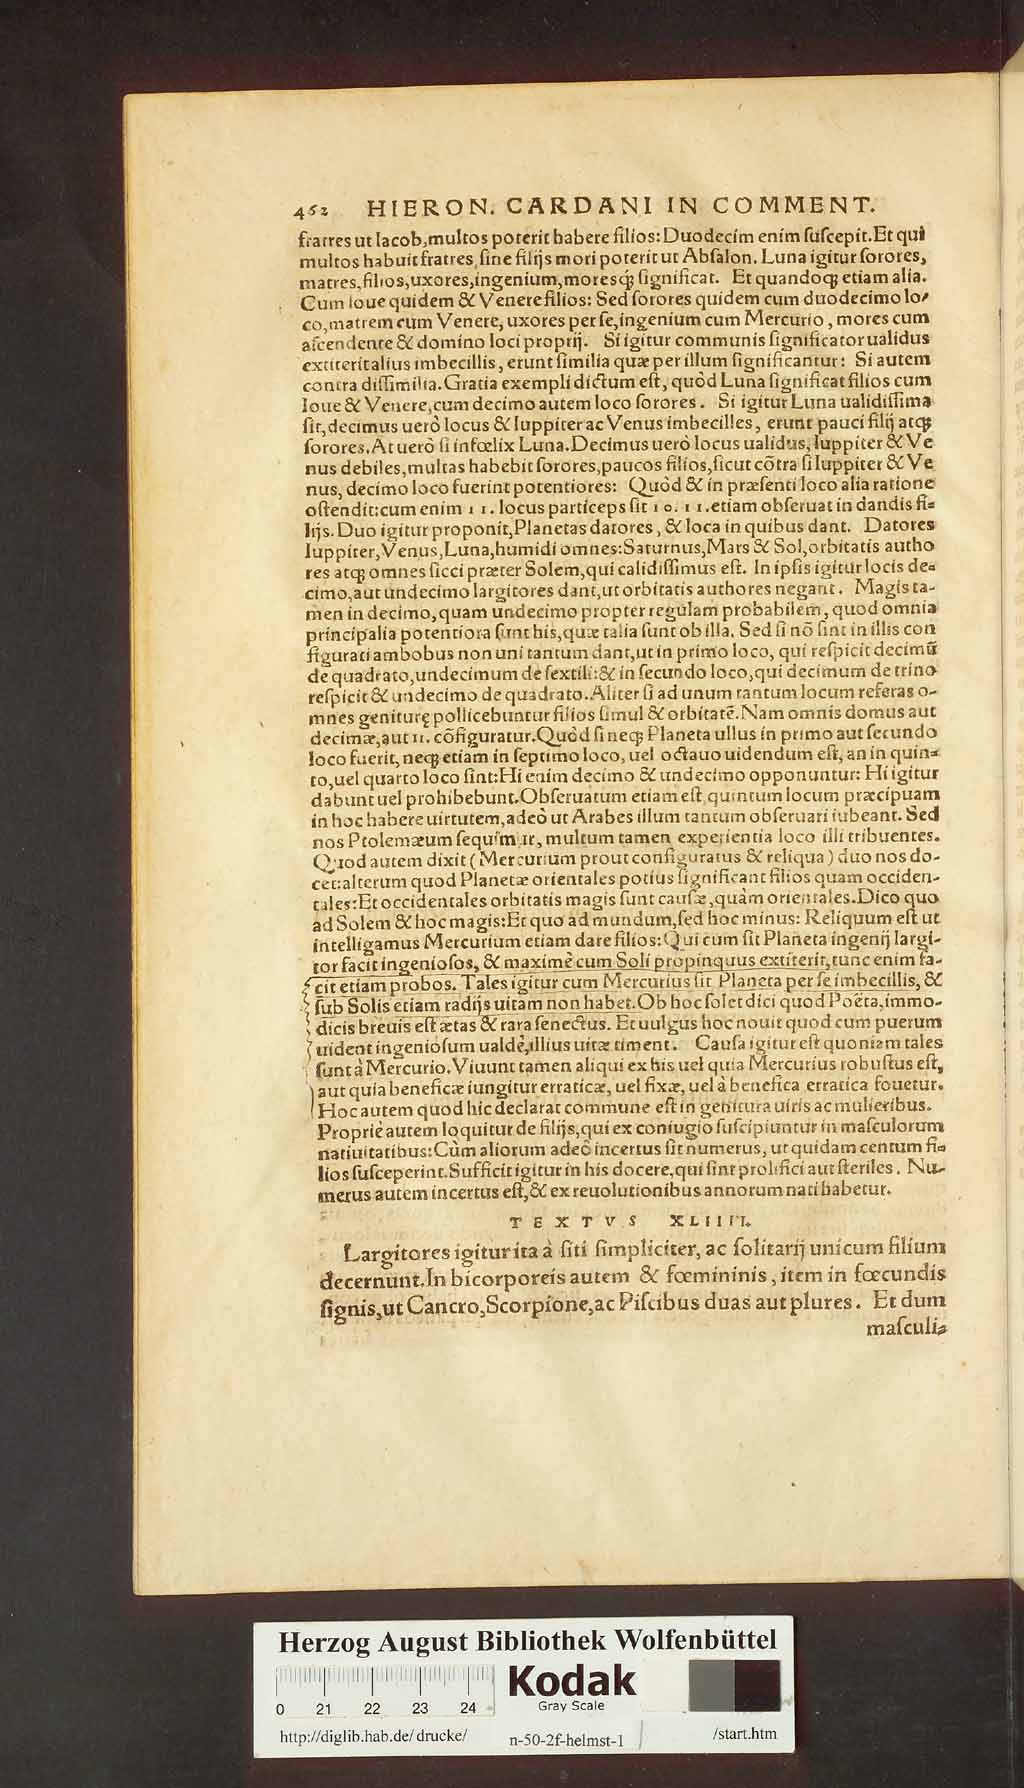 462 HIERON. CARDANI IN COMMENT.
fratres ut Iacob, multos poterit habere filios: Duodecim enim ſuſcepit. Et qui
multos habuit fratres, ſine filijs mori poterit ut Abſalon. Luna igitur ſorores,
matres, filios, uxores, ingenium, moresq́; ſignificat. Et quandoq; etiam alia.
Cum Ioue quidem & Venere filios: Sed ſorores quidem cum duodecimo lo⸗
co, matrem cum Venere, uxores per ſe, ingenium cum Mercurio, mores cum
aſcendente & domino loci proprij. Si igitur communis ſignificator ualidus
extiterit alius imbecillis, erunt ſimilia quæ per illum ſignificantur: Si autem
contra diſſimilia. Gratia exempli dictum eſt, quòd Luna ſignificat filios cum
Ioue & Venere, cum decimo autem loco ſorores. Si igitur Luna ualidiſſima
ſit, decimus uerò locus & Iuppiter ac Venus imbecilles, erunt pauci filij atq;
ſorores. At uerò ſi infœlix Luna. Decimus uerò locus ualidus, Iuppiter & Ve
nus debiles, multas habebit ſorores, paucos filios, ſicut cõtra ſi Iuppiter & Ve
nus, decimo loco fuerint potentiores: Quòd & in præſenti loco alia ratione
oſtendit: cum enim 11. locus particeps ſit 10. 11. etiam obſeruat in dandis fi⸗
lijs. Duo igitur proponit, Planetas datores, & loca in quibus dant. Datores
Iuppiter, Venus, Luna, humidi omnes: Saturnus, Mars & Sol, orbitatis autho
res atq; omnes ſicci præter Solem, qui calidiſſimus eſt. In ipſis igitur locis de⸗
cimo, aut undecimo largitores dant, ut orbitatis authores negant. Magis ta-
men in decimo, quam undecimo propter regulam probabilem, quod omnia
principalia potentiora ſunt his, quæ talia ſunt ob illa. Sed ſi nõ ſint in illis con
figurati ambobus non uni tantum dant, ut in primo loco, qui reſpicit decimũ
de quadrato, undecimum de ſextili: & in ſecundo loco, qui decimum de trino
reſpicit & undecimo de quadrato. Aliter ſi ad unum tantum locum referas o-
mnes genituræ pollicebuntur filios ſimul & orbitatẽ. Nam omnis domus aut
decimæ, aut 11. cõfiguratur. Quòd ſi neq; Planeta ullus in primo aut ſecundo
loco fuerit, neq; etiam in ſeptimo loco, uel octauo uidendum eſt, an in quin⸗
to, uel quarto loco ſint: Hi enim decimo & undecimo opponuntur: Hi igitur
dabunt uel prohibebunt. Obſeruatum etiam eſt quintum locum præcipuam
in hoc habere uirtutem, adeò ut Arabes illum tantum obſeruari iubeant. Sed
nos Ptolemæum ſequimur, multum tamen experientia loco illi tribuentes.
Quod autem dixit (Mercurium prout configuratus & reliqua) duo nos do-
cet: alterum quod Planetæ orientales potius ſignificant filios quam occiden-
tales: Et occidentales orbitatis magis ſunt cauſæ, quàm orientales. Dico quo
ad Solem & hoc magis: Et quo ad mundum, ſed hoc minus: Reliquum eſt ut
intelligamus Mercurium etiam dare filios: Qui cum ſit Planeta ingenij largi-
tor facit ingenioſos, & maximè cum Soli propinquus extiterit, tunc enim fa-
cit etiam probos. Tales igitur cum Mercurius ſit Planeta per ſe imbecillis, &
ſub Solis etiam radijs uitam non habet. Ob hoc ſolet dici quod Poëta, immo-
dicis breuis eſt ætas & rara ſenectus. Et uulgus hoc nouit quod cum puerum
uident ingenioſum ualdè, illius uitæ timent. Cauſa igitur eſt quoniam tales
ſunt à Mercurio. Viuunt tamen aliqui ex his uel quia Mercurius robuſtus eſt,
aut quia beneficæ iungitur erraticæ, uel fixæ, uel à benefica erratica fouetur.
Hoc autem quod hic declarat commune eſt in genitura uiris ac mulieribus.
Propriè autem loquitur de filijs, qui ex coniugio ſuſcipiuntur in maſculorum
natiuitatibus: Cùm aliorum adeò incertus ſit numerus, ut quidam centum fi⸗
lios ſuſceperint. Sufficit igitur in his docere, qui ſint prolifici aut ſteriles. Nu-
merus autem incertus eſt, & ex reuolutionibus annorum nati habetur.
TEXTVS XLIIII.
Largitores igitur ita à ſiti ſimpliciter, ac ſolitarij unicum filium
decernunt. In bicorporeis autem & fœmininis, item in fœcundis
ſignis, ut Cancro, Scorpione, ac Piſcibus duas aut plures. Et dum
maſculi⸗
Herzog August Bibliothek Wolfenbüttel
Kodak
Gray Scale
0 21 22 23 24
http://diglib.hab.de/drucke/ n-50-2f-helmst-1 /start.htm